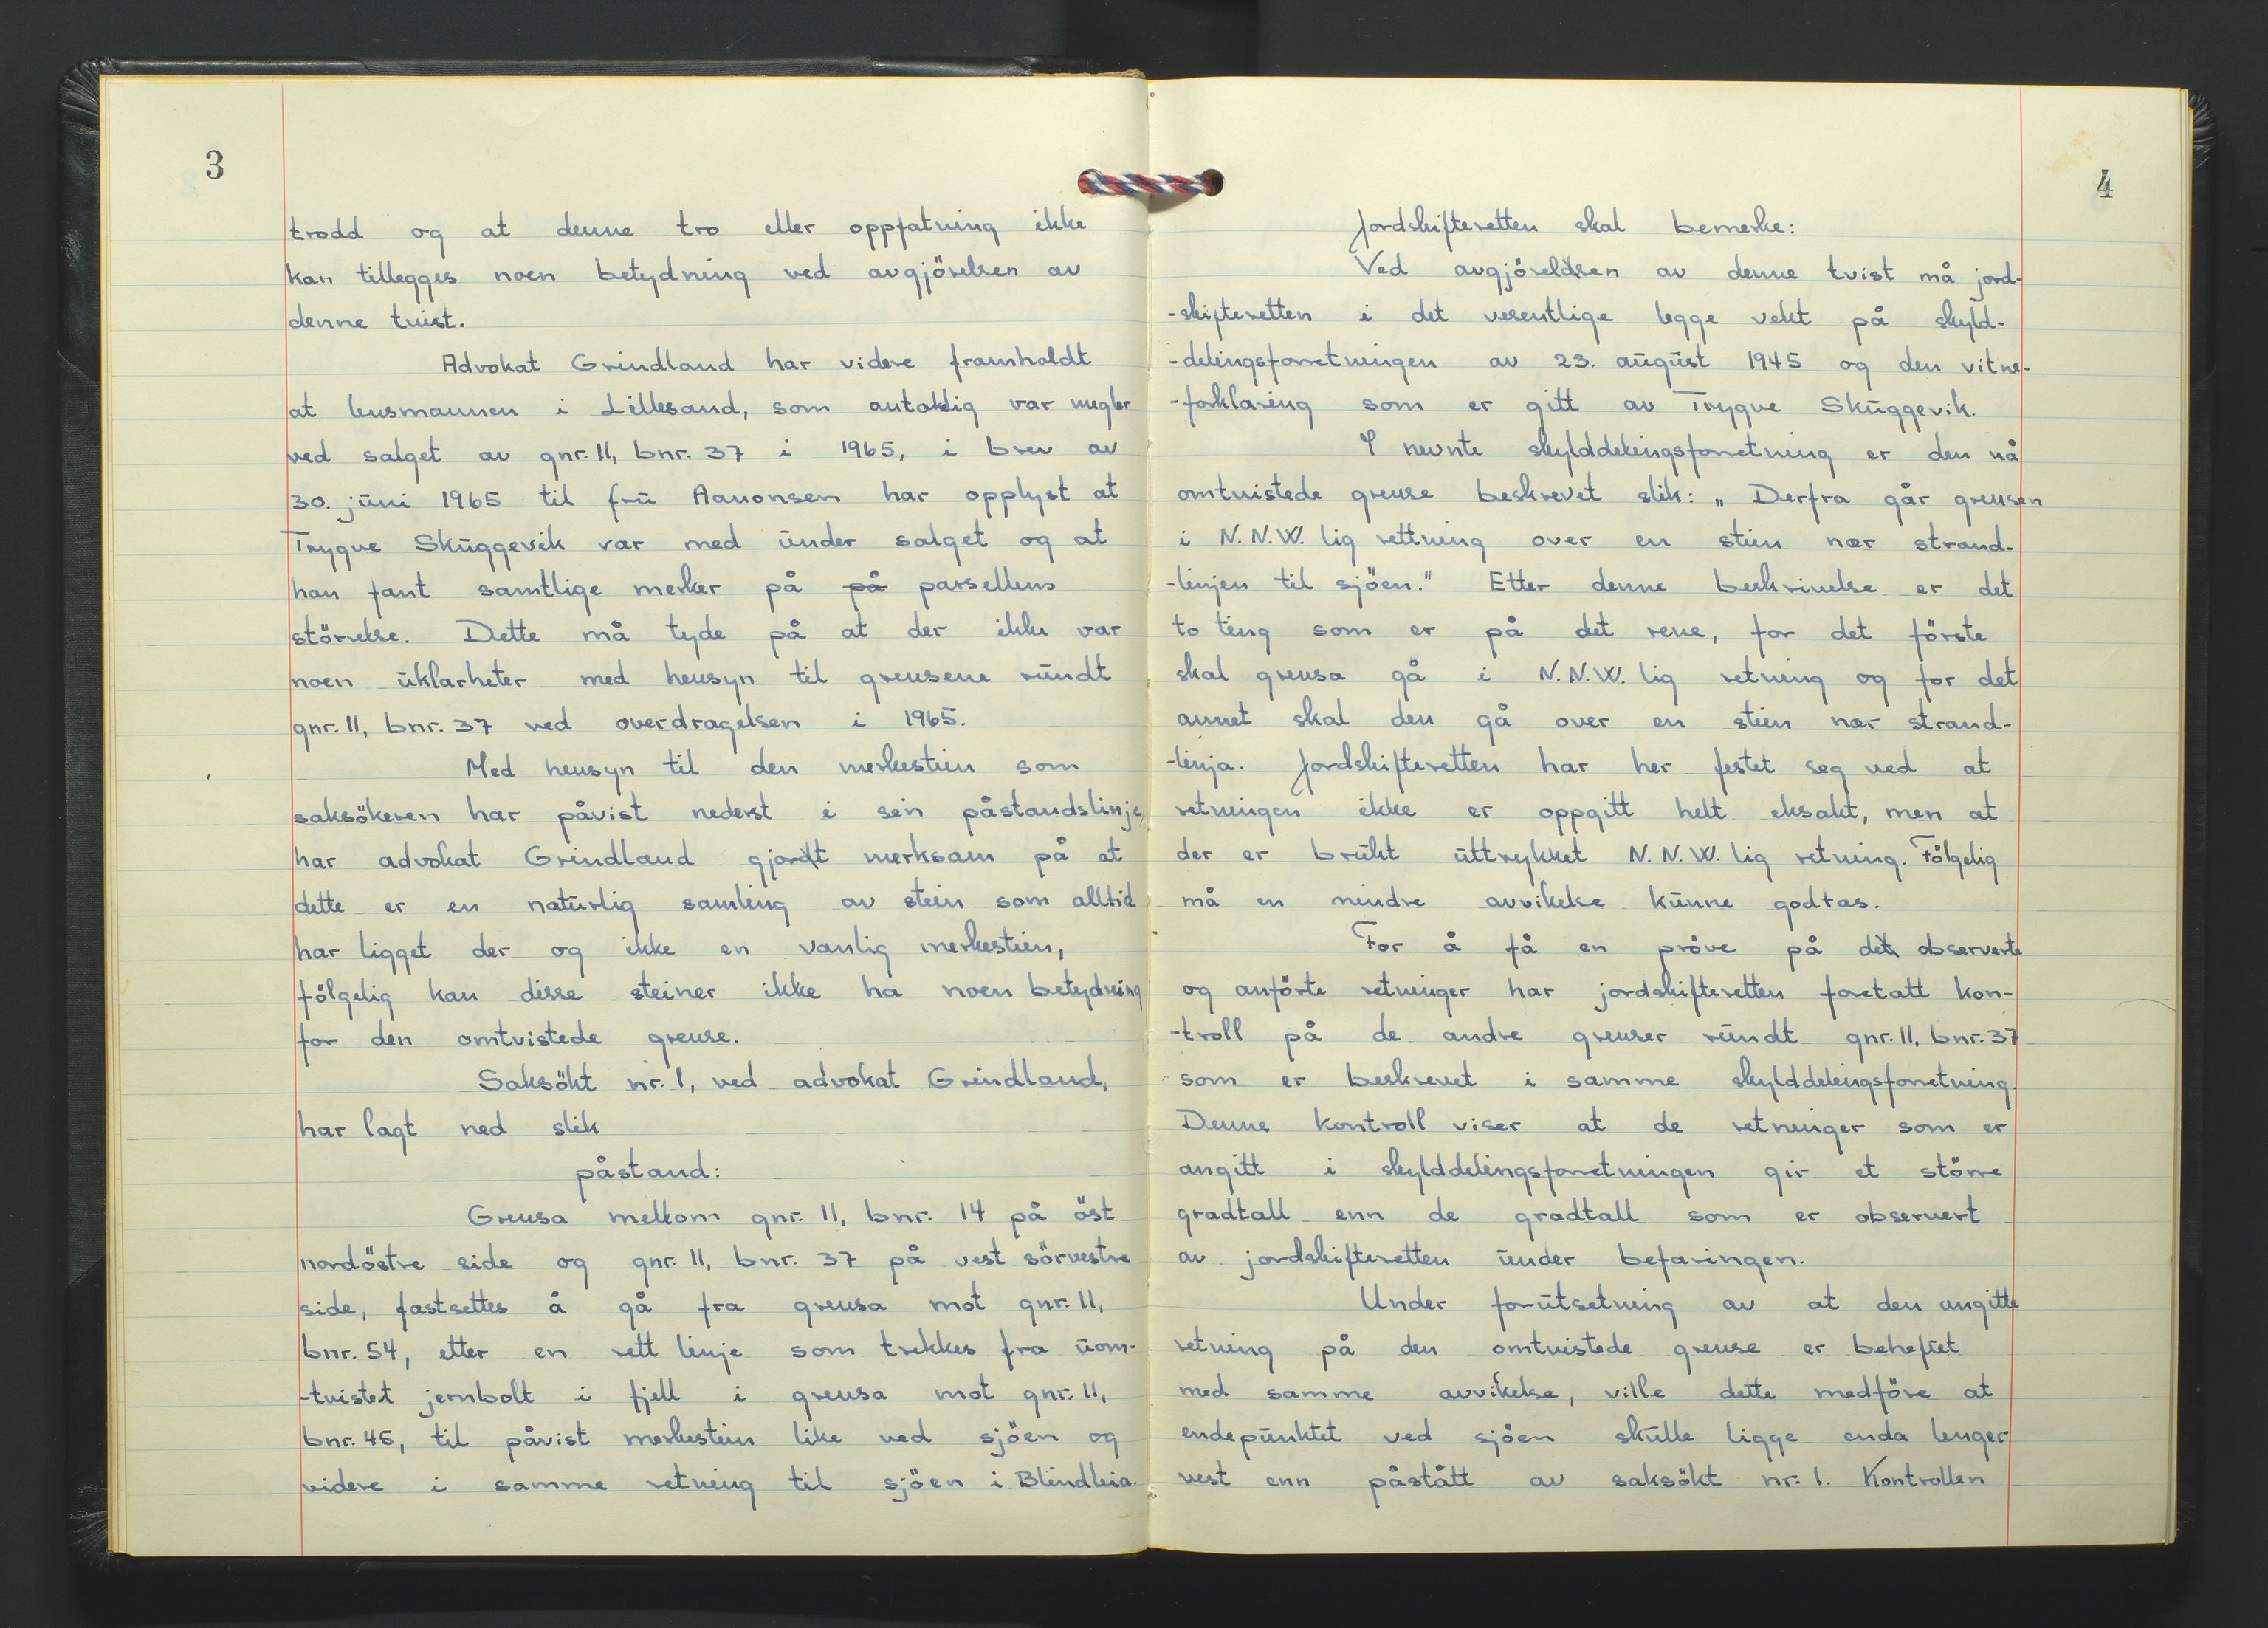 3
trodd og at denne tro eller oppfatning ikke
kan tillegges noen betydning ved avgjörelsen av
denne tvist.
Advokat Grindland har videre framholdt
at lensmannen i Lillesand, som antakelig var megler
ved salget av gnr. 11, bnr. 37 i 1965, i brev av
30. juni 1965 til fru Aanonsen har opplyst at
Trygve Skuggevik var med under salget og at
han fant samtlige merker på på parsellens
störrelse. Dette må tyde på at der ikke var
noen uklarheter med hensyn til grensene rundt
gnr. 11, bnr. 37 ved overdragelsen i 1965.
Med hensyn til den merkestein som
saksökeren har påvist nederst i sin påstandslinje,
har advokat Grindland gjort merksam på at
dette er en naturlig samling av stein som alltid
har ligget der og ikke en vanlig merkestein,
fölgelig kan disse steiner ikke ha noen betydning
for den omtvistede grense.
Saksökt nr. 1, ved advokat Grindland,
har lagt ned slik
påstand:
Grensa mellom gnr. 11, bnr. 14 på öst
nordöstre side og gnr. 11, bnr. 37 på vest sörvestre
side, fastsettes å gå fra grensa mot gnr. 11,
bnr. 54, etter en rett linje som trekkes fra uom-
-tvistet jernbolt i fjell i grensa mot gnr. 11,
bnr. 45, til påvist merkestein like ved sjöen og
videre i samme retning til sjöen i Blindleia.
4
Jordskifteretten skal bemerke:
Ved avgjörelsen av denne tvist må jord-
-skifteretten i det vesentlige legge vekt på skyld-
-delingsforretningen av 23. august 1945 og den vitne-
-forklaring som er gitt av Trygve Skuggevik.
I nevnte skylddelingsforretning er den nå
omtvistede grense beskrevet slik: „Derfra går grensen
i N.N.W. lig rettning over en stein nær strand-
-linjen til sjöen." Etter denne beskrivelse er det
to ting som er på det rene, for det förste
skal grensa gå i N.N.W. lig retning og for det
annet skal den gå over en stein nær strand-
-linja. Jordskifteretten har her festet seg ved at
retningen ikke er oppgitt helt eksakt, men at
der er brukt uttrykket N.N.W. lig retning. Fölgelig
må en mindre avvikelse kunne godtas.
For å få en pröve på de observerte
og anförte retninger har jordskifteretten foretatt kon-
-troll på de andre grenser rundt gnr. 11, bnr. 37
som er beskrevet i samme skylddelingsforretning.
Denne kontroll viser at de retninger som er
angitt i skylddelingsforretningen gir et större
gradtall enn de gradtall som er observert
av jordskifteretten under befaringen.
Under forutsetning av at den angitte
retning på den omtvistede grense er beheftet
med samme avvikelse, ville dette medföre at
endepunktet ved sjöen skulle ligge enda lenger
vest enn påstått av saksökt nr. 1. Kontrollen